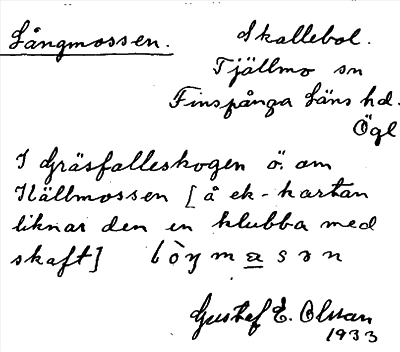 Långmossen.
Skallebol.
Tjällmo sn
Finspånga läns hd.
Ögl
I Gräsfalleskogen ö. om
Källmossen [å ek-kartan
liknar den en klubba med
skaft] lòŋmasən
Gustaf E. Olsson
1933